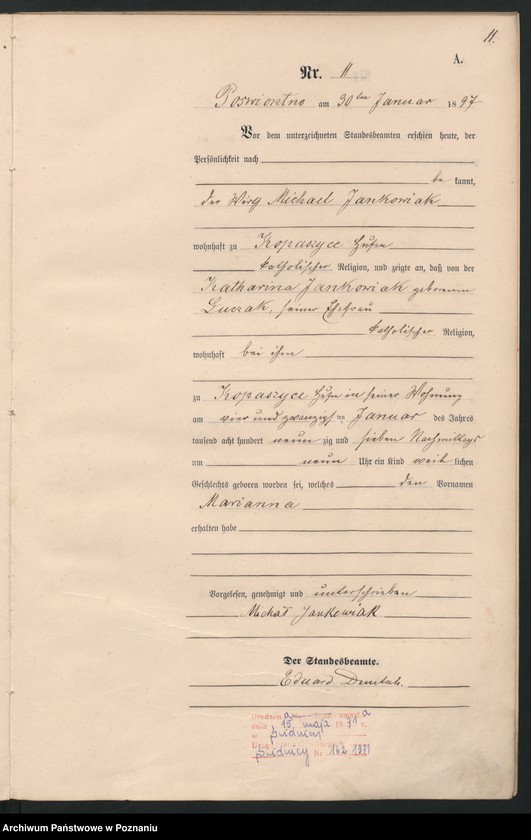 11.
A.
Nr. 11
Poswiontno am 30ten Januar 1897
Vor dem unterzeichneten Standesbeamten erschien heute, der
Persönlichkeit nach
be kannt,
der Wirth Michael Jankowiak
wohnhaft zu Kopaszyce Hufen
katholischer Religion, und zeigte an, daß von der
Katharina Jankowiak geborenen
Luczak, seiner Ehefrau
katholischer Religion,
wohnhaft bei ihm
zu Kopaszyce Hufen in seiner Wohnung
am vier und zwanzigsten Januar des Jahres
tausend acht hundert neun zig und sieben Nachmittags
um neun Uhr ein Kind weib lichen
Geschlechts geboren worden sei, welches den Vornamen
Marianna
erhalten habe
Vorgelesen, genehmigt und unterschrieben
Michał Jankowiak
Der Standesbeamte.
Eduard
a
dnia 15. maja 1971 r.
w Świdnicy
Świdnicy Nr 162 1971
Archiwum Państwowe w Poznaniu